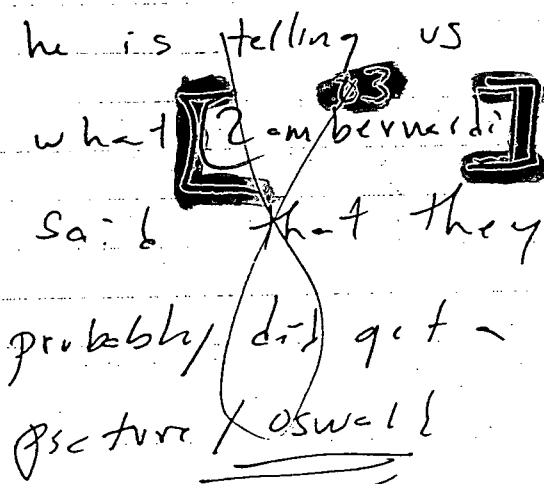 he is telling us
03
what [Zambernardi]
said that they
probably did get a
picture / oswald